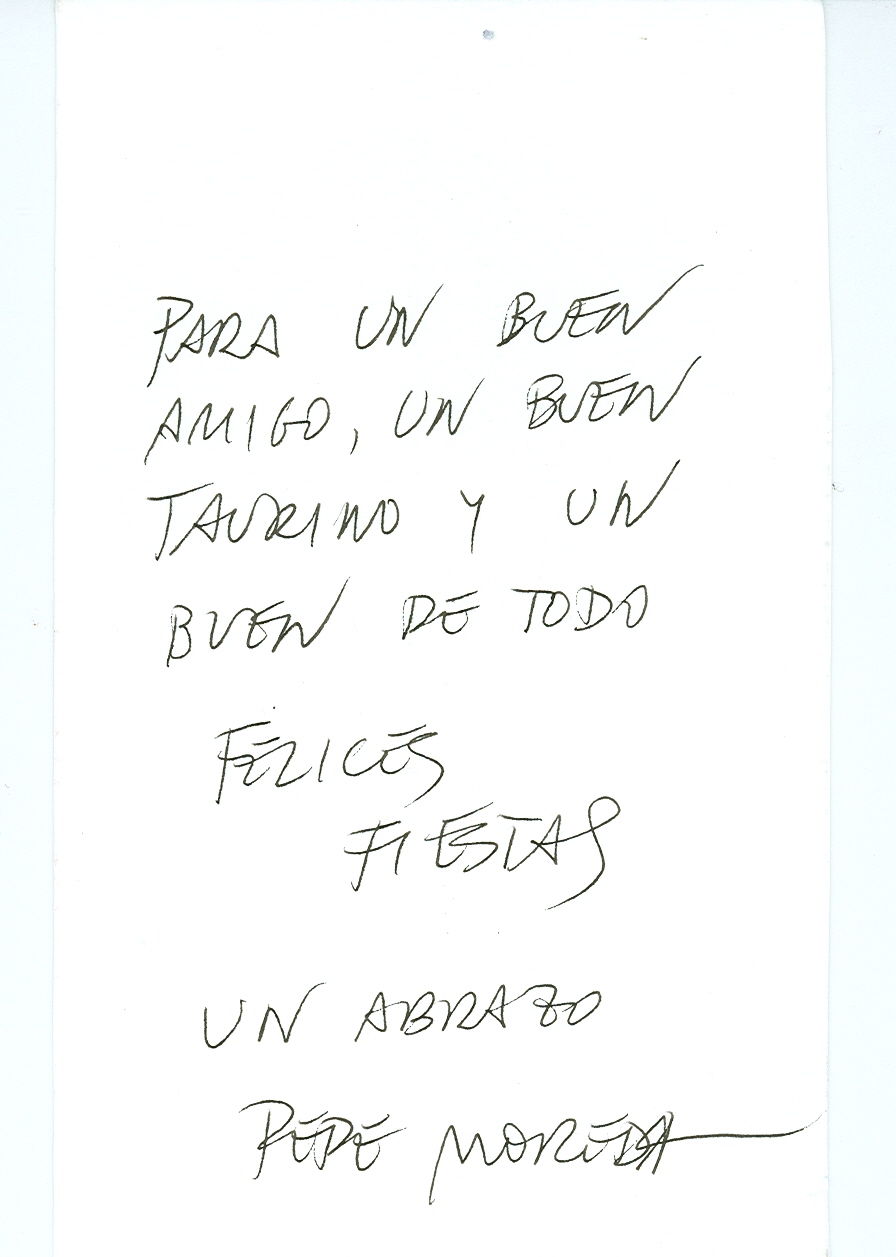 PARA UN BUEN
AMIGO, UN BUEN
TAURINO Y UN
BUEN DE TODO
FELICES
FIESTAS
UN ABRAZO
PEPE MOREDA